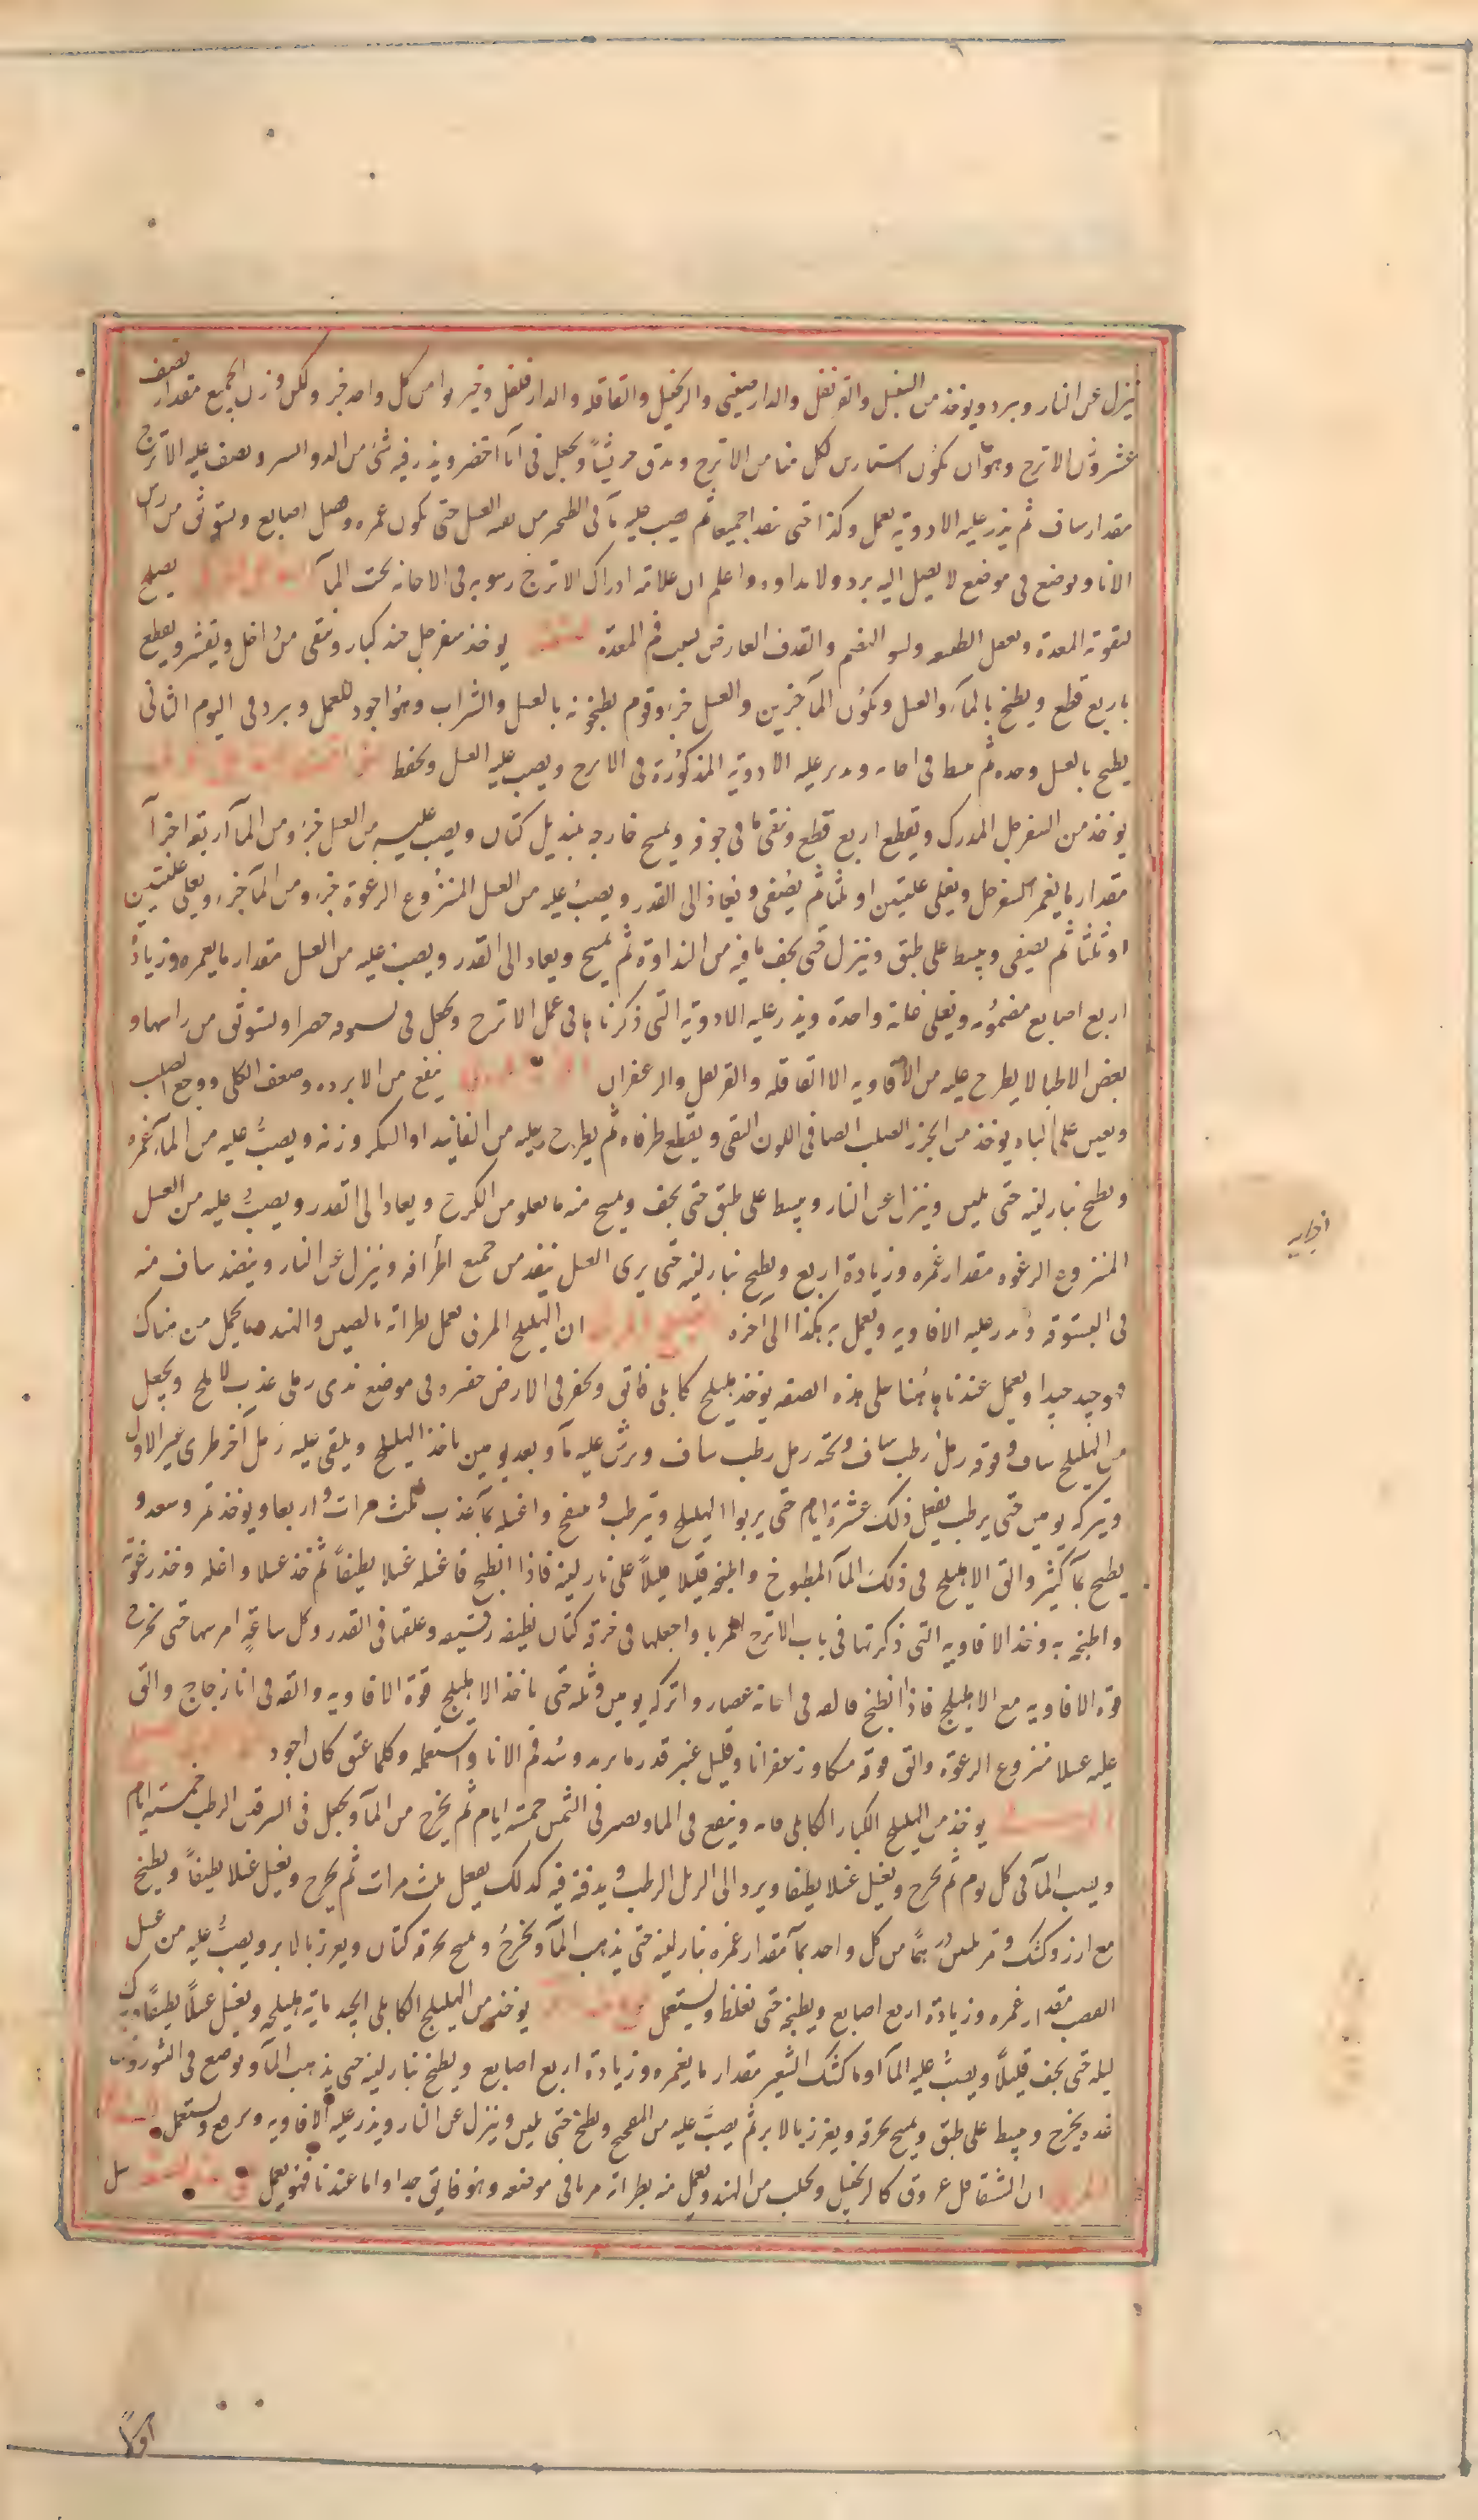 ينزل عن النار ويبرد ويوخذ من السنبل والقرنفل والدارصيني والزنجبيل والقاقله والدارفلفل وخيربوا من كل واحد جز وليكن وزن الجميع مقدار نصف
عشر وزن الاترج وهو ان يكون استارين لكل منا من الاترج ويدق جريشاً ويجعل في اناء اخضر ويذر فيه شئ من الدوا اليسير ويصف عليه الاترج
مقدار ساف ثم يذر عليه الادوية يعمل هكذا حتى ينفد جميعا ثم يصب عليه ما في الطنجير من بقية العسل حتى يكون غمره وفضل اصابع ويستوثق من راس
الانا ويوضع في موضع لا يصل اليه برد ولا نداوه واعلم ان علامة ادراك الاترج رسوبه في الاجانه تحت المآ يصلح
لتقوية المعدة وسو الهضم والقذف العارض لسبب فم المعدة يوخذ سفرجل جيد كبار وينقى من داخل ويقشر ويقطع
باربع قطع ويطبخ بالمآء والعسل ويكون المآ جزين والعسل جزء وقوم يطبخونه بالعسل والشراب وهو اجود للعمل ويبرد وفي اليوم الثاني
يطبخ بالعسل وحده ثم يبسط في اجانه ويذر عليه الادوية المذكورة في الاترج ويصب عليه العسل ويحفظ
يوخذ من السفرجل المدرك ويقطع اربع قطع وينقى ما في جوفه ويمسح خارجه بمنديل كتان ويصب عليه من العسل جزء ومن المآ اربعة اجزآ
مقدار ما يغمر السفرجل ويغلى غليتين او ثلثا ثم يصفى ويعاد الى القدر ويصب عليه من العسل المنزوع الرغوة جزء ومن المآ جزء ويغلى غليتين
او ثلثا ثم يصفى ويبسط على طبق وينزل حتى يجف ما فيه من النداوة ثم يمسح ويعاد الى القدر ويصب عليه من العسل مقدار ما يغمره وزيادة
اربع اصابع مضمومه ويغلى غليانه واحدة ويذر عليه الادوية التي ذكرناها في عمل الاترج ويجعل في بستوقه خضرا ويستوثق من راسها و
بعض الاطبا لا يطرح عليه من الافاويه الا القاقله والقرنفل والزعفران ينفع من الابرده وضعف الكلى ووجع الصلب
ويعين على الباه يوخذ من الجزر الصلب الصافي اللون النقي ويقطع طرفاه ثم يطرح عليه من الفانيد او السكر وزنه ويصب عليه من المآ غمره
ويطبخ بنار لينه حتى يلين وينزل عن النار ويبسط على طبق حتى يجف ويمسح منه ما يعلو من الكرج ويعاد الى القدر ويصب عليه من العسل
المنزوع الرغوه مقدار غمره وزيادة اربع ويطبخ بنار لينه حتى يرى العسل ينفد من جميع اطرافه وينزل عن النار وينضد ساف منه
في البستوقه ويذر عليه الافاويه ويعمل به هكذا الى آخره ان الهليلج المربى يعمل بطراته بالصين والهند ويحمل من هناك
وهو جيد جيدا ويعمل عندنا هاهنا على هذه الصفه يوخذ هليلج كابلي فائق ويحفر في الارض حفره في موضع ندى رملي عذب لا ملح ويجعل
من الهليلج ساف وفوقه رمل رطب ساف وتحته رمل رطب ساف ويرش عليه مآ وبعد يومين ياخذ الهليلج ويلقى عليه رمل آخر طرى غير الاول
ويتركه يومين حتى يرطب يفعل ذلك عشرة ايام حتى يربوا الهليلج ويترطب وينتفخ واغسله بمآ عذب ثلث مرات او اربعا ويوخذ تمر وسعد و
يطبخ بمآ كثير والق الاهليلج في ذلك المآ المطبوخ واطبخه قليلا قليلاً على نار لينه فاذا انطبخ فاغسله غسلا نظيفاً ثم خذ عسلا واغله وخذ رغوته
واطبخه به وخذ الافاويه التي ذكرتها في باب الاترج المربا واجعلها في خرقه كتان نظيفه رقيقه وعلقها في القدر وكل ساعةٍ امرسها حتى تخرج
قوة الافاويه مع الاهليلج فاذا انطبخ فالقه في اجانة غضار واتركه يومين وثلثه حتى ياخذ الاهليلج قوة الافاويه والقه في انا زجاج والق
عليه عسلا منزوع الرغوة والق فوقه مسكا وزعفرانا وقليل عنبر قدر ما يريد وسد فم الانا واستعمله وكلما عتق كان اجود
يوخذ من الهليلج الكبار الكابلي مايه وينقع في الما ويصير في الشمس خمسة ايام ثم يخرج من المآ ويجعل في السرقين الرطب خمسة ايام
ويصب المآ في كل يوم ثم يخرج ويغسل غسلا نظيفا ويرد الى الرمل الرطب ويدفنه فيه كذلك يفعل ثلث مرات ثم يخرج ويغسل غسلا نظيفاً ويطبخ
مع ارز وكشك وتمر ثلثين درهماً من كل واحد بمآ مقدار غمره بنار لينه حتى يذهب المآ ويخرج ويمسح بخرقه كتان ويغرز بالابر ويصب عليه من عسل
القصب مقدار غمره وزيادة اربع اصابع ويطبخه حتى يغلظ ويستعمل يوخذ من الهليلج الكابلي الجيد ماية هليلجه ويغسل غسلاً نظيفاً ويترك
ليله حتى يجف قليلاً ويصب عليه المآ او ما كشك الشعير مقدار ما يغمره وزيادة اربع اصابع ويطبخ بنار لينه حتى يذهب المآ ويوضع في التنور
غده يخرج ويبسط على طبق ويمسح بخرقه ويغرز بالابر ثم يصب عليه من ويطبخ حتى يلين وينزل عن النار ويذر عليه الافاويه ويرفع ويستعمل
ان الشقاقل عروق كالزنجبيل ويجلب من الهند ويعمل منه بطراته مربا في موضعه وهو فايق جدا واما عندنا فهو يعمل
اولاً